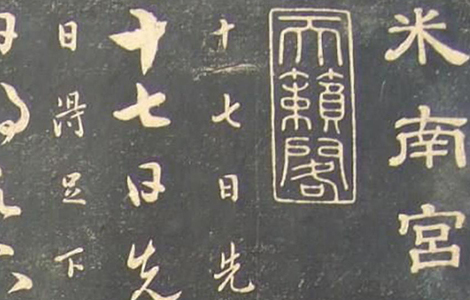 米南宮
天籟閣
十七日先
十七日先
日得足下